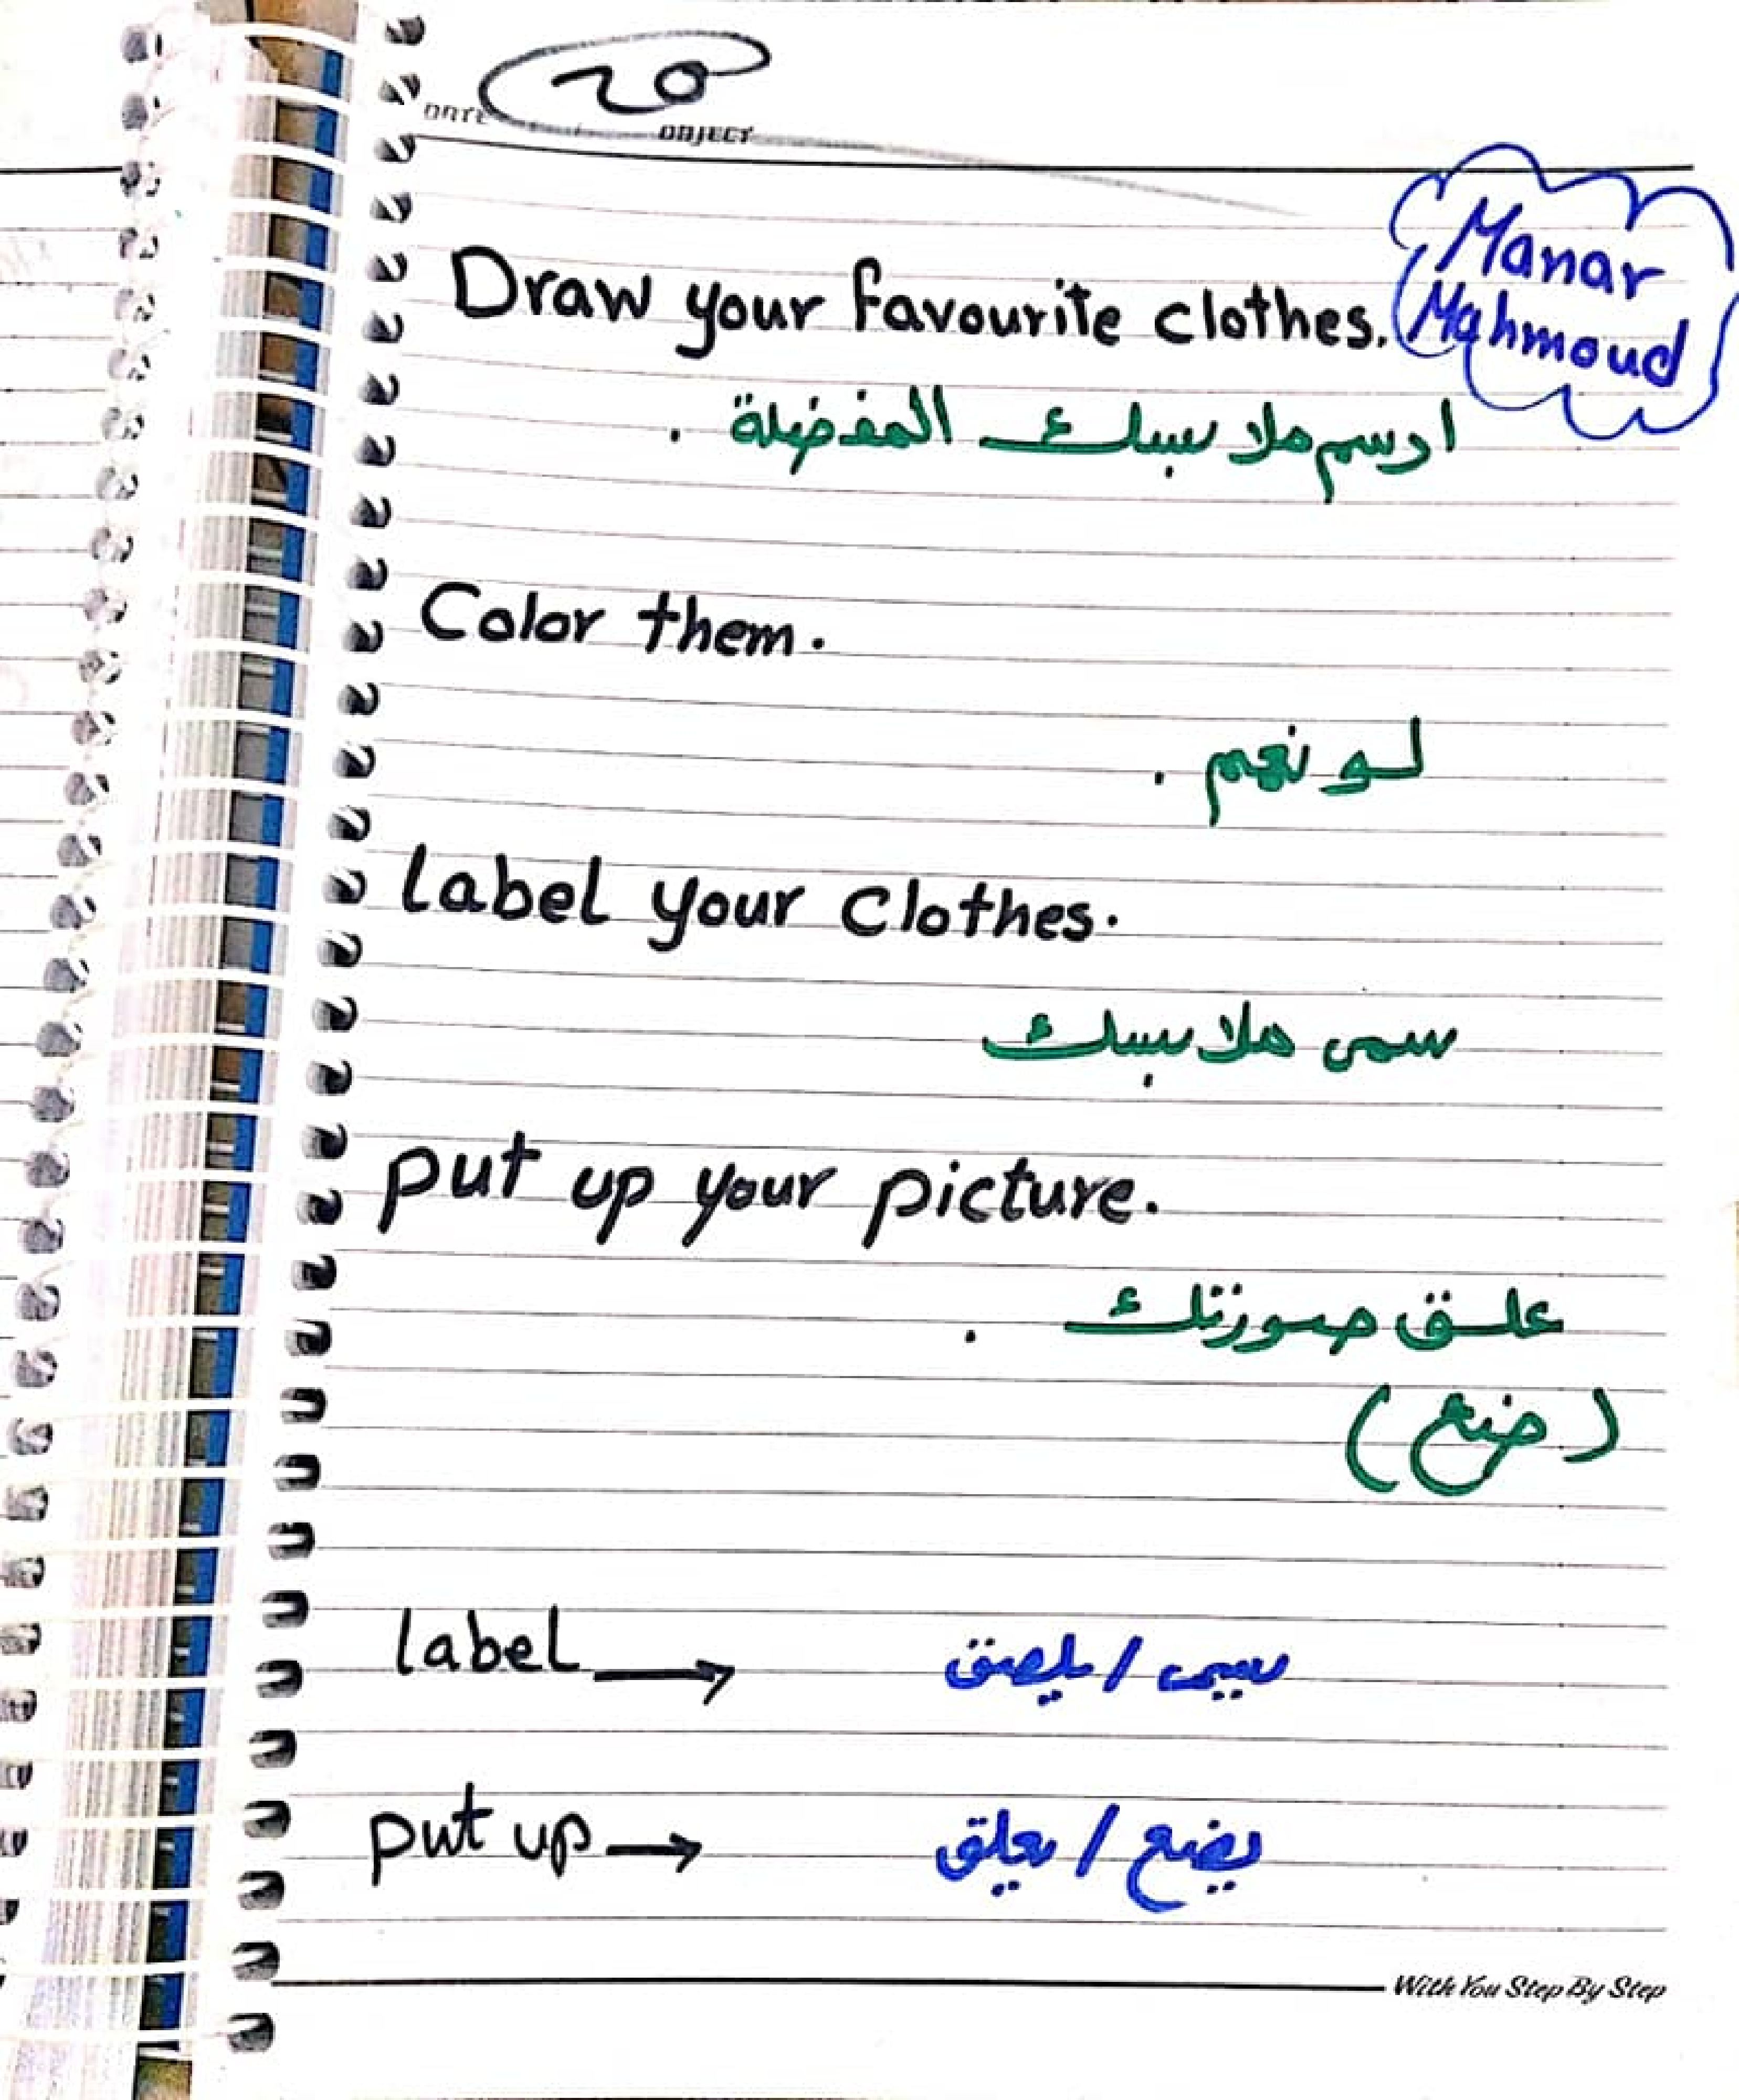 20
DATE
OBJECT
Manar
Mahmoud
Draw your favourite clothes.
ارسم ملابسك المفضلة .
Color them.
لونهم .
label your clothes.
سمى ملابسك
put up your picture.
علق صورتك .
(ضع)
label → يسمى / يلصق
put up → يضع / يعلق
With You Step By Step